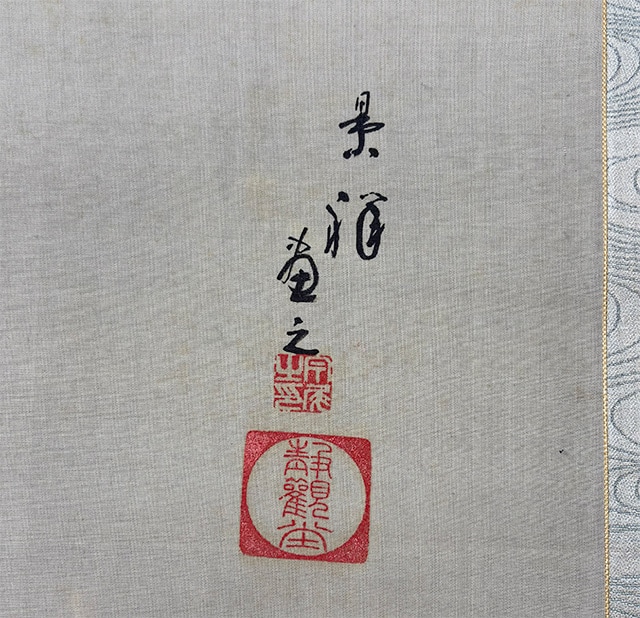 景祥
畫之
靜觀堂